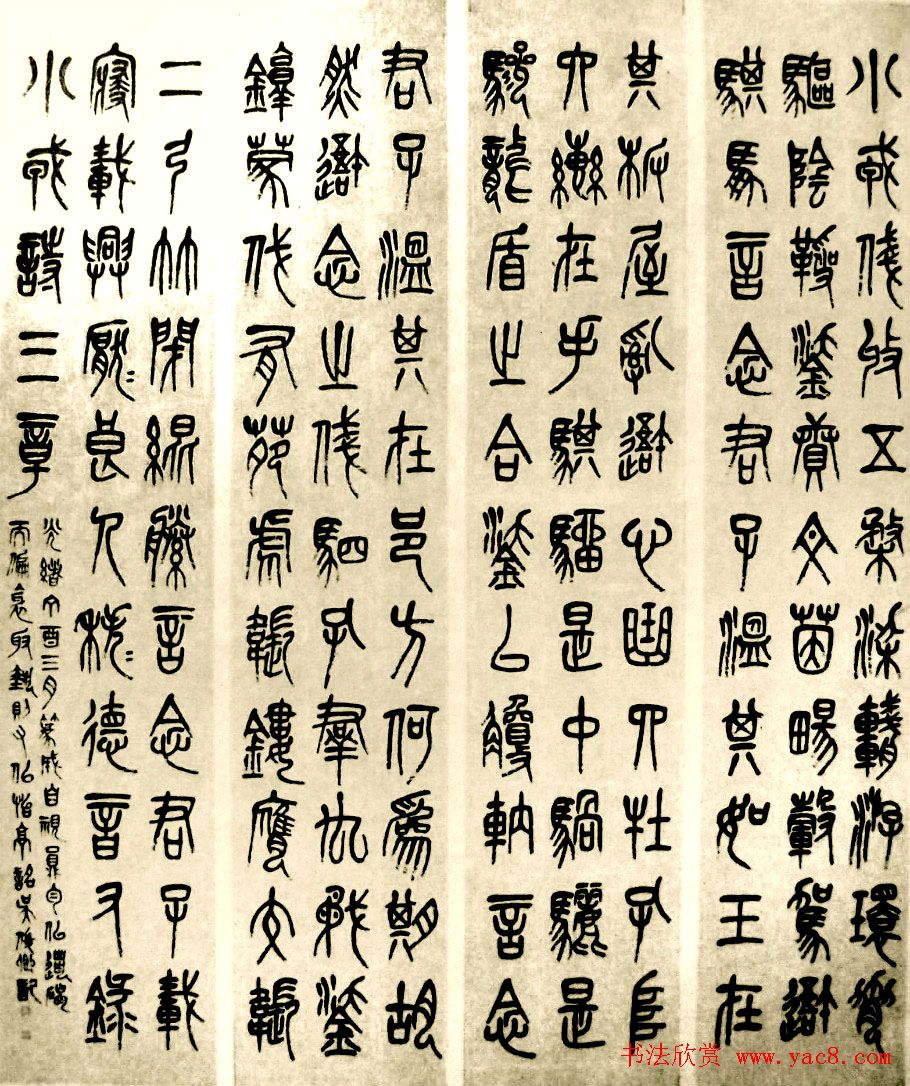 小戎俴收五楘梁輈游環脅
驅陰靷鋈續文茵暢轂駕我
騏馵言念君子溫其如玉在
其板屋亂我心曲四牡孔阜
六轡在手騏駵是中騧驪是
驂龍盾之合鋈以觼軜言念
君子溫其在邑方何為期胡
然我念之俴駟孔群厹矛鋈
錞蒙伐有苑虎韔鏤膺交韔
二弓竹閉緄縢言念君子載
寢載興厭〻良人秩〻德音又錄
小戎詩三章
光緒丁酉三月篆成自視
吳俊卿記
书法欣赏 www.yac8.com